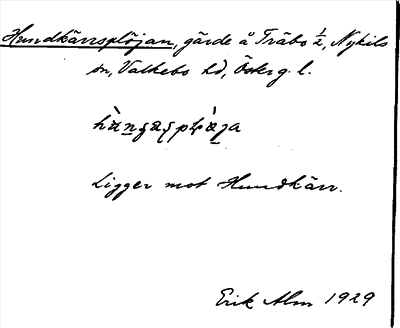 Hundkärrsplöjan, gärde å Träbo ½, Nykils
sn, Valkebo hd, Österg. l.
Ligger mot Hundkärr.
Erik Alm 1929